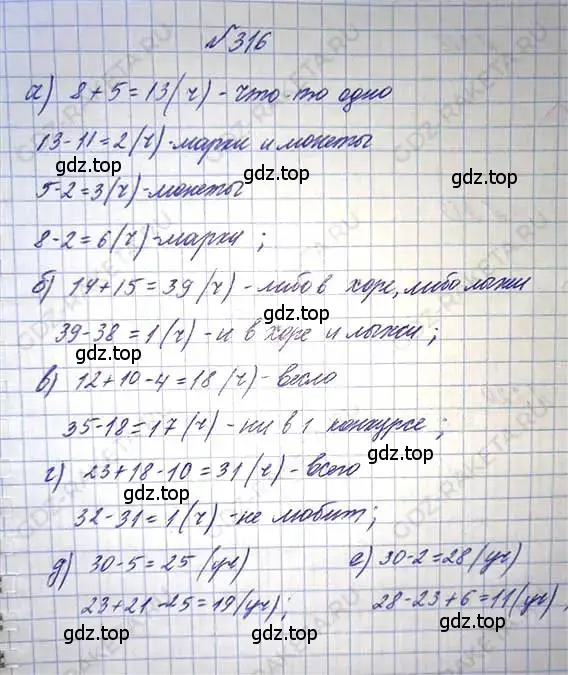 №316
а) 8+5=13(ч)-что-то одно
13-11=2(ч)-марки и монеты
5-2=3(ч)-монеты
8-2=6(ч)-марки;
б) 14+15=39(ч)-либо в хоре, либо лыжи
39-38=1(ч)-и в хоре и лыжи;
в) 12+10-4=18(ч)-всего
35-18=17(ч)-ни в 1 конкурсе;
г) 23+18-10=31(ч)-всего
32-31=1(ч)-не любит;
д) 30-5=25(уч) е) 30-2=28(уч)
23+21-25=19(уч); 28-23+6=11(уч),
gdz.top
gdz.top
gdz.top
gdz.top
gdz.top
gdz.top
gdz.top
gdz.top
gdz.top
gdz.top
GDZ-RAKETA.RU